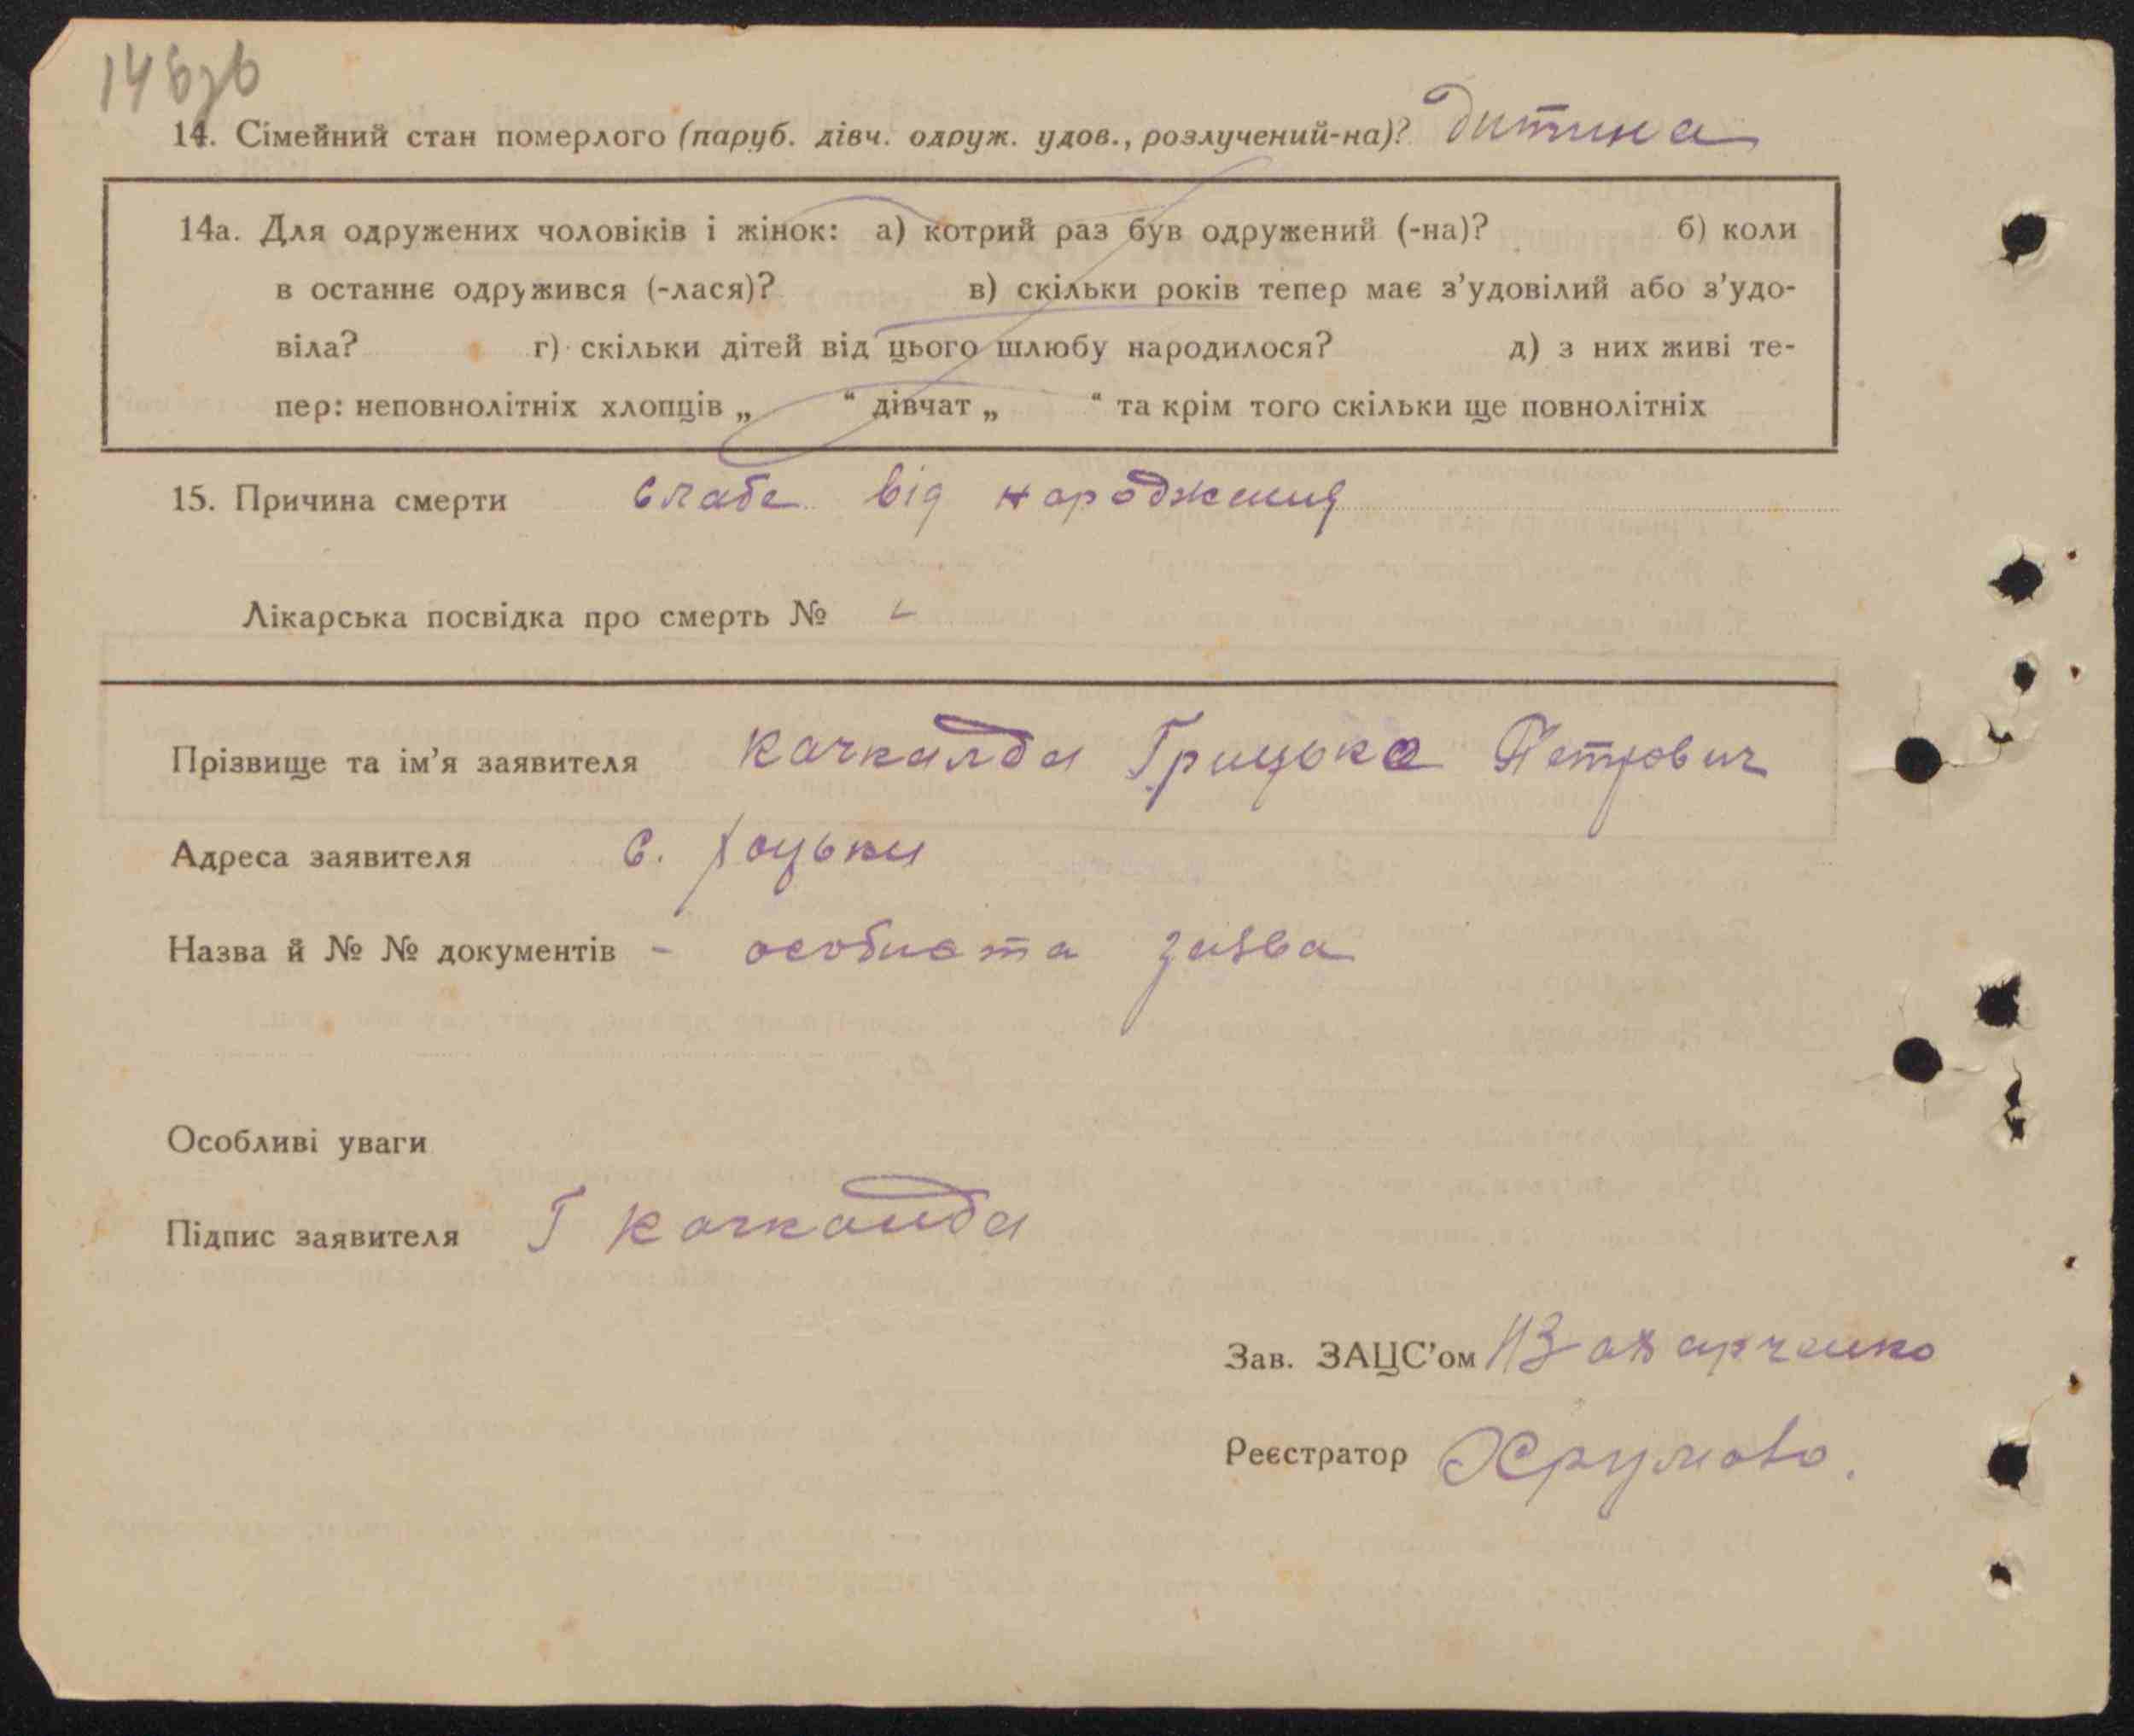 14. Сімейний стан померлого (паруб. дівч. одруж. удов., розлучений-на)? дитина
14а. Для одружених чоловіків і жінок: а) котрий раз був одружений (-на)? б) коли
в останнє одружився (-лася)? в) скільки років тепер має з’удовілий або з’удо-
віла? г) скільки дітей від цього шлюбу народилося? д) з них живі те-
пер: неповнолітніх хлопців „ “ дівчат „ “ та крім того скільки ще повнолітніх
15. Причина смерти слабе від народження
Лікарська посвідка про смерть №
Прізвище та ім’я заявителя Качкалда Грицько Петрович
Адреса заявителя с. Хоцьки
Назва й № № документів - особиста заява
Особливі уваги
Підпис заявителя Г Качкалда
Зав. ЗАЦС’ом Захарченко
Реєстратор